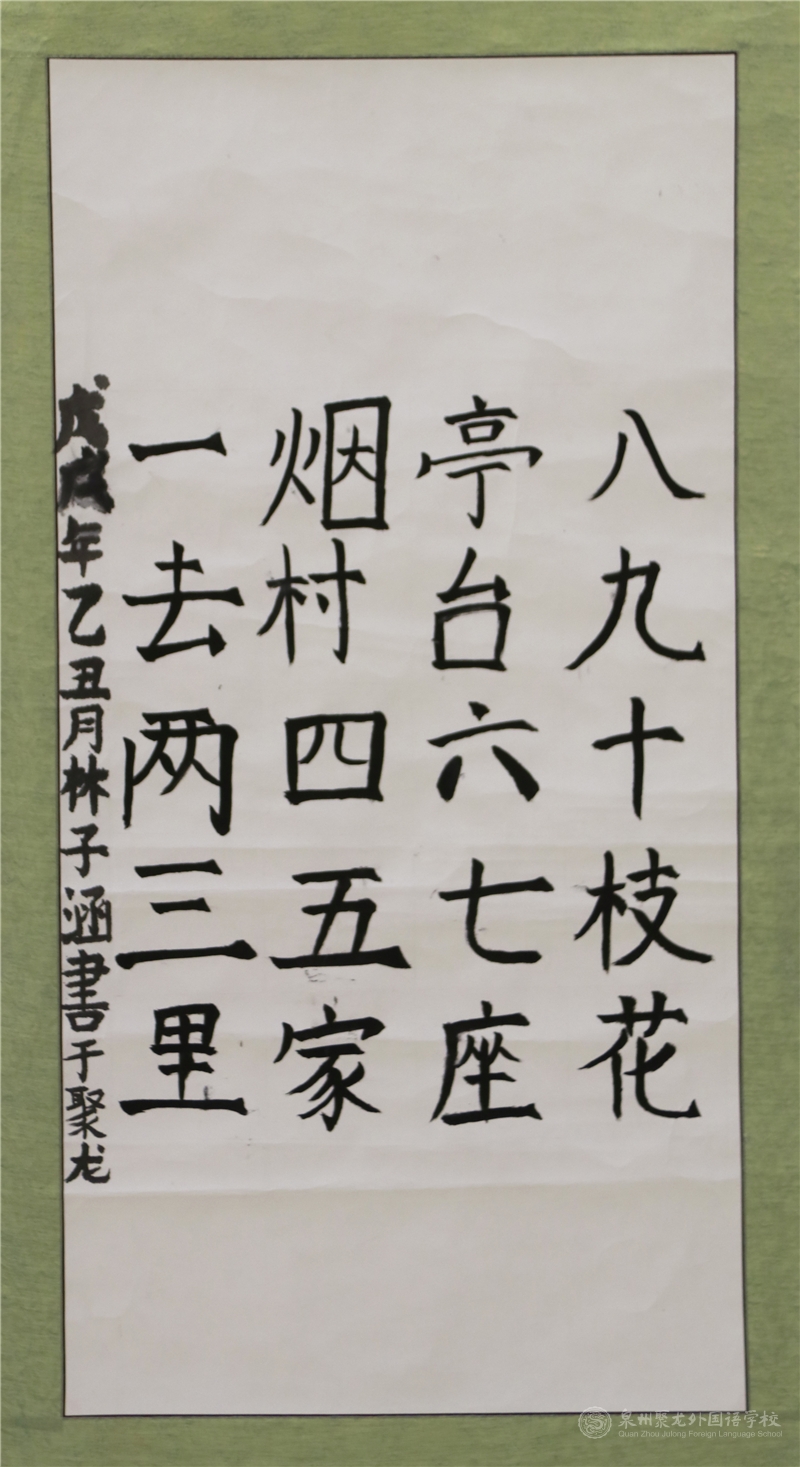 一去两三里
烟村四五家
亭台六七座
八九十枝花
戊戌年乙丑月林子涵書于聚龙
泉州聚龙外国语学校
Quan Zhou Julong Foreign Language School